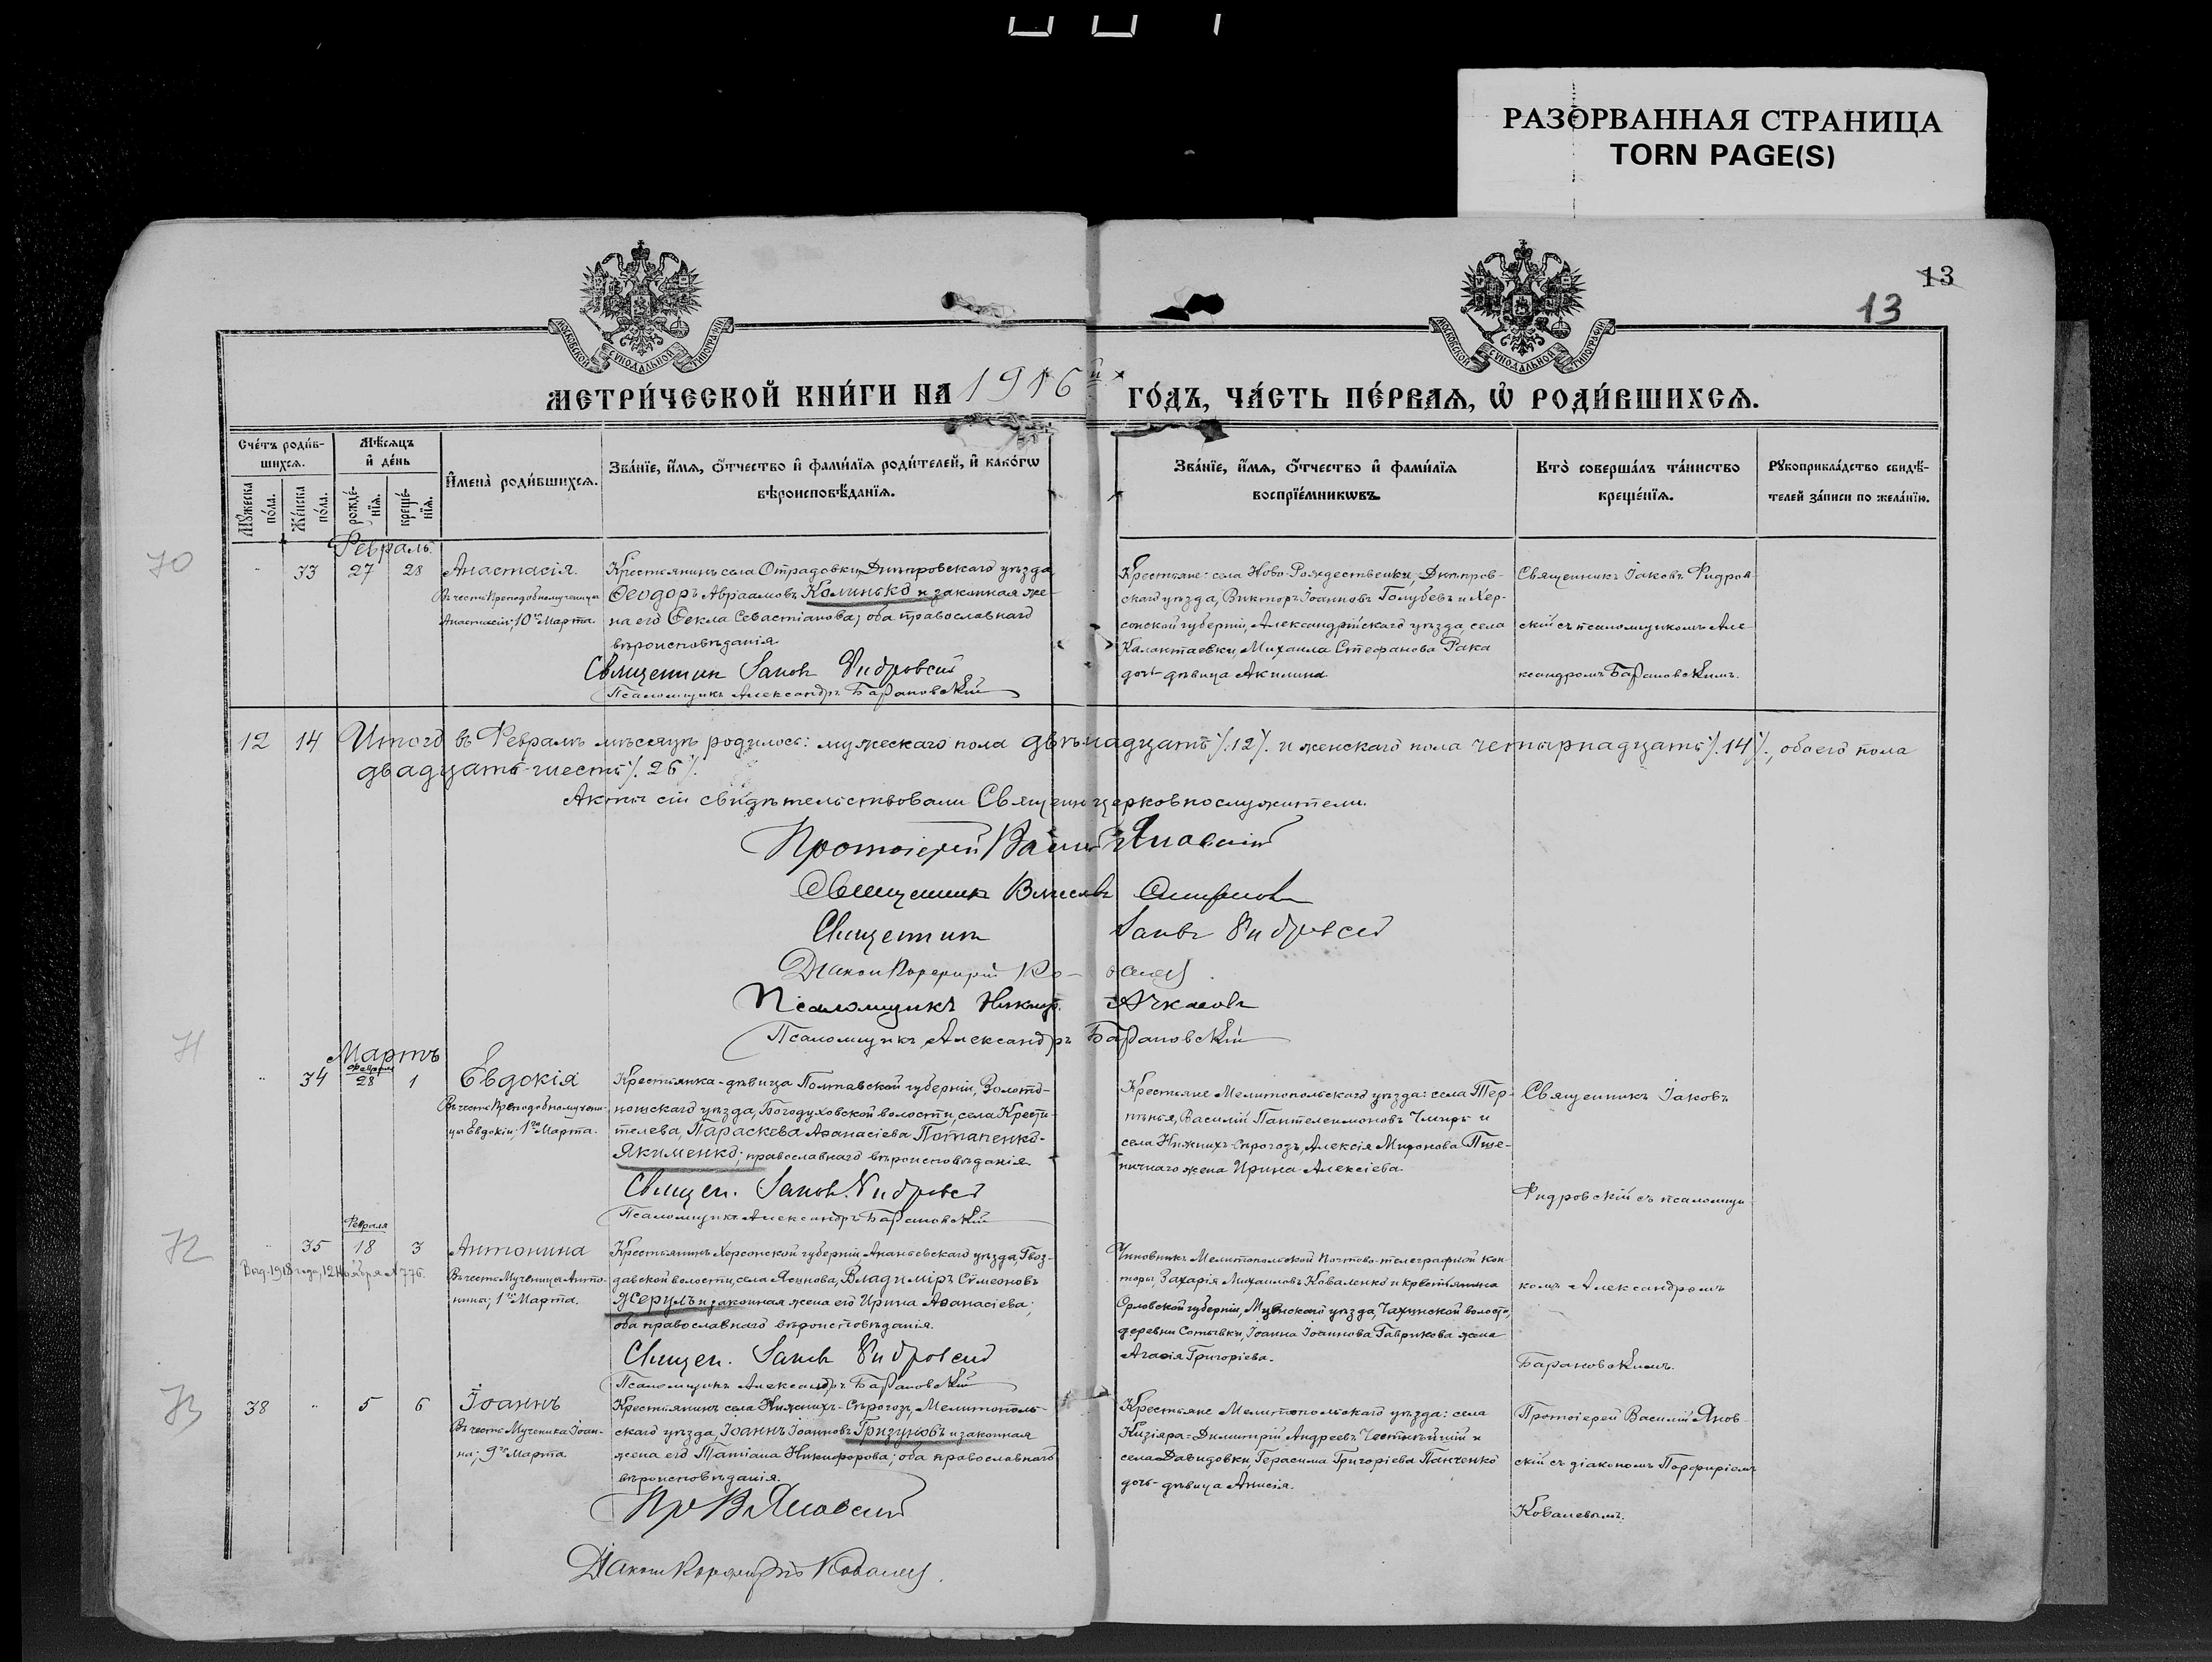 РАЗОРВАННАЯ СТРАНИЦА
TORN PAGE(S)
13
13
МОСКОВСКОЙ СУНОДАЛЬНОЙ ТИПОГРАФІИ
МОСКОВСКОЙ СУНОДАЛЬНОЙ ТИПОГРАФІИ
МЕТРИ́ЧЕСКОЙ КНИ́ГИ НА 1916й ГО́ДЪ, ЧА́СТЬ ПЕ́РВАѦ, Ѡ҆ РОДИ́ВШИХСѦ.
Сче́тъ роди́в-
шихсѧ.
Мѣ́сѧцъ
и҆ де́нь
Мꙋ́жеска
по́ла.
Же́нска
по́ла.
рожде́-
нїѧ.
креще́-
нїѧ.
И҆мена̀ роди́вшихсѧ.
Зва́нїе, и҆́мѧ, ѻ҆́тчество и҆ фами́лїѧ роди́телей, и҆ како́гѡ
вѣроисповѣ́данїѧ.
Зва́нїе, и҆́мѧ, ѻ҆́тчество и҆ фами́лїѧ
воспрїе́мникѡвъ.
Кто̀ соверша́лъ та́инство
креще́нїѧ.
Рꙋкоприкла́дство свидѣ́-
телей за́писи по жела́нїю.
Февраль
70
33 27 28 Анастасія.
Въ честь Преподобномученицы
Анастасіи; 10го Марта.
Крестьянинъ села Отрадовки, Днѣпровскаго уѣзда,
Ѳеодоръ Авраамовъ Колинько и законная же-
на его Ѳекла Севастіанова; оба православнаго
вѣроисповѣданія.
Священник Іаков Фидровскій
Псаломщикъ Александръ Барановскій
Крестьяне: села Ново-Рождественки, Днѣпров-
скаго уѣзда, Викторъ Іоанновъ Голубевъ и Хер-
сонской губерніи, Александрійскаго уѣзда, села
Калантаевки, Михаила Стефанова Рака
дочь-дѣвица Акилина
Священникъ Іаковъ Фидров-
скій съ псаломщикомъ Але-
ксандромъ Барановскимъ.
12 14 Итого въ Февралѣ мѣсяцѣ родилось: мужескаго пола двѣнадцать ./.12/. и женскаго пола четырнадцать ./.14/., обоего пола
двадцать-шесть /. 26 /.
Акты сіи свидѣтельствовали Священноцерковнослужители.
Протоіерей Василій Яновскій
Священникъ
Священник Іаковъ Фидровскій
Діакон Порфирій Ковалев
Псаломщикъ Никиф. Ачкасовъ
Псаломщикъ Александръ Барановскій
Мартъ
71
34 Февраля 28 1 Евдокія
Въ честь Преподобномучени-
цы Евдокіи; 1го Марта.
Крестьянка-дѣвица Полтавской губерніи, Золото-
ношскаго уѣзда, Богодуховской волости, села Крести-
телева, Параскева Аѳанасіева Потапенко-
Якименко; православнаго вѣроисповѣданія
Священ. Іаков. Фидровскій
Псаломщикъ Александръ Барановскій
Крестьяне Мелитопольскаго уѣзда: села Тер-
пѣнья, Василій Пантелеимоновъ Чмирь и
села Нижнихъ-Сѣрогозъ, Алексія Миронова Пше-
ничнаго жена Ирина Алексіева.
Священникъ Іаковъ
Фидровскій съ псаломщи-
72
35 Февраля 18 3 Антонина
Выд. 1918 года, 12 Ноября №776.
Въ честь Мученицы Анто-
нины; 1го Марта.
Крестьянинъ Херсонской губерніи Ананьевскаго уѣзда, Гвоз-
давской волости, села Ясинова, Владиміръ Сѵмеоновъ
Жерулъ и законная жена его Ирина Аѳанасіева;
оба православнаго вѣроисповѣданія.
Священ. Іаков Фидровскій
Псаломщикъ Александръ Барановскій
Чиновникъ Мелитопольской Почтово-телеграфной кон-
торы Захарія Михаиловъ Коваленко и крестьянина
Орловской губерніи, Мценскаго уѣзда, волости,
деревни Іоанна Іоаннова Гаврикова жена
Агаѳія Григоріева.
комъ Александромъ
Барановскимъ.
73
38 5 6 Іоаннъ
Въ честь Мученика Іоан-
на; 9го Марта
Крестьянинъ села Нижнихъ-Сѣрогозъ, Мелитополь-
скаго уѣзда, Іоаннъ Іоанновъ Гризуновъ и законная
жена его Татіана Никифорова; оба православнаго
вѣроисповѣданія.
Пр В Яновскій
Діакон Порфирій Ковалев.
Крестьяне Мелитопольскаго уѣзда: села
Кизіяра-Димитрій Андреевъ и
села Давидовки, Герасима Григоріева Панченко
дочь-дѣвица Анисія.
Протоіерей Василій Янов-
скій съ діакономъ Порфиріемъ
Ковалевымъ.